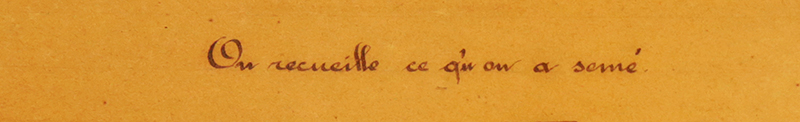 On recueille ce qu'on a semé.